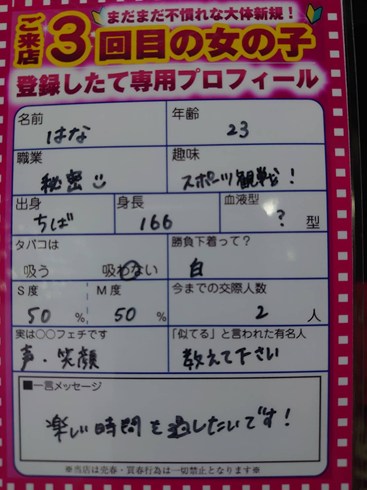 まだまだ不慣れな大体新規！
ご来店3回目の女の子
登録したて専用プロフィール
名前
はな
年齢
23
職業
秘密
趣味
スポーツ観戦！
出身
ちば
身長
166
血液型
？型
タバコは
吸う 吸わない
勝負下着って？
白
S度
50％
M度
50％
今までの交際人数
2人
実は○○フェチです
声・笑顔
「似てる」と言われた有名人
教えて下さい
■一言メッセージ
楽しい時間を過したいです！
※当店は売春・買春行為は一切禁止となります※